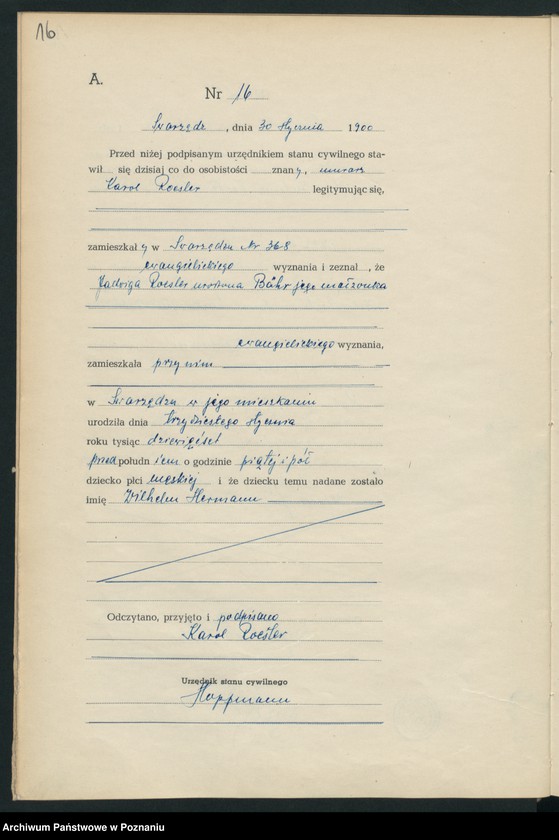 16
A.
Nr 16
Swarzędz, dnia 30 stycznia 1900
Przed niżej podpisanym urzędnikiem stanu cywilnego sta-
wił się dzisiaj co do osobistości znany, murarz
Karol Roesler legitymując się,
zamieszkały w Swarzędzu Nr 368
ewangielickiego wyznania i zeznał, że
Jadwiga Roesler urodzona Bähr jego małżonka
ewangielickiego wyznania,
zamieszkała przy nim
w Swarzędzu w jego mieszkaniu
urodziła dnia trzydziestego stycznia
roku tysiąc dziewięćset
przed południem o godzinie piątej i pół
dziecko płci męskiej i że dziecku temu nadane zostało
imię Wilhelm Hermann
Odczytano, przyjęto i podpisano
Karol Roesler
Urzędnik stanu cywilnego
Hoppmann
Archiwum Państwowe w Poznaniu